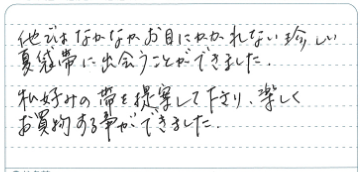 他ではなかなかお目にかかれない珍しい
夏袋帯に出会うことができました.
私好みの帯を提案して下さり、楽しく
お買物する事ができました.